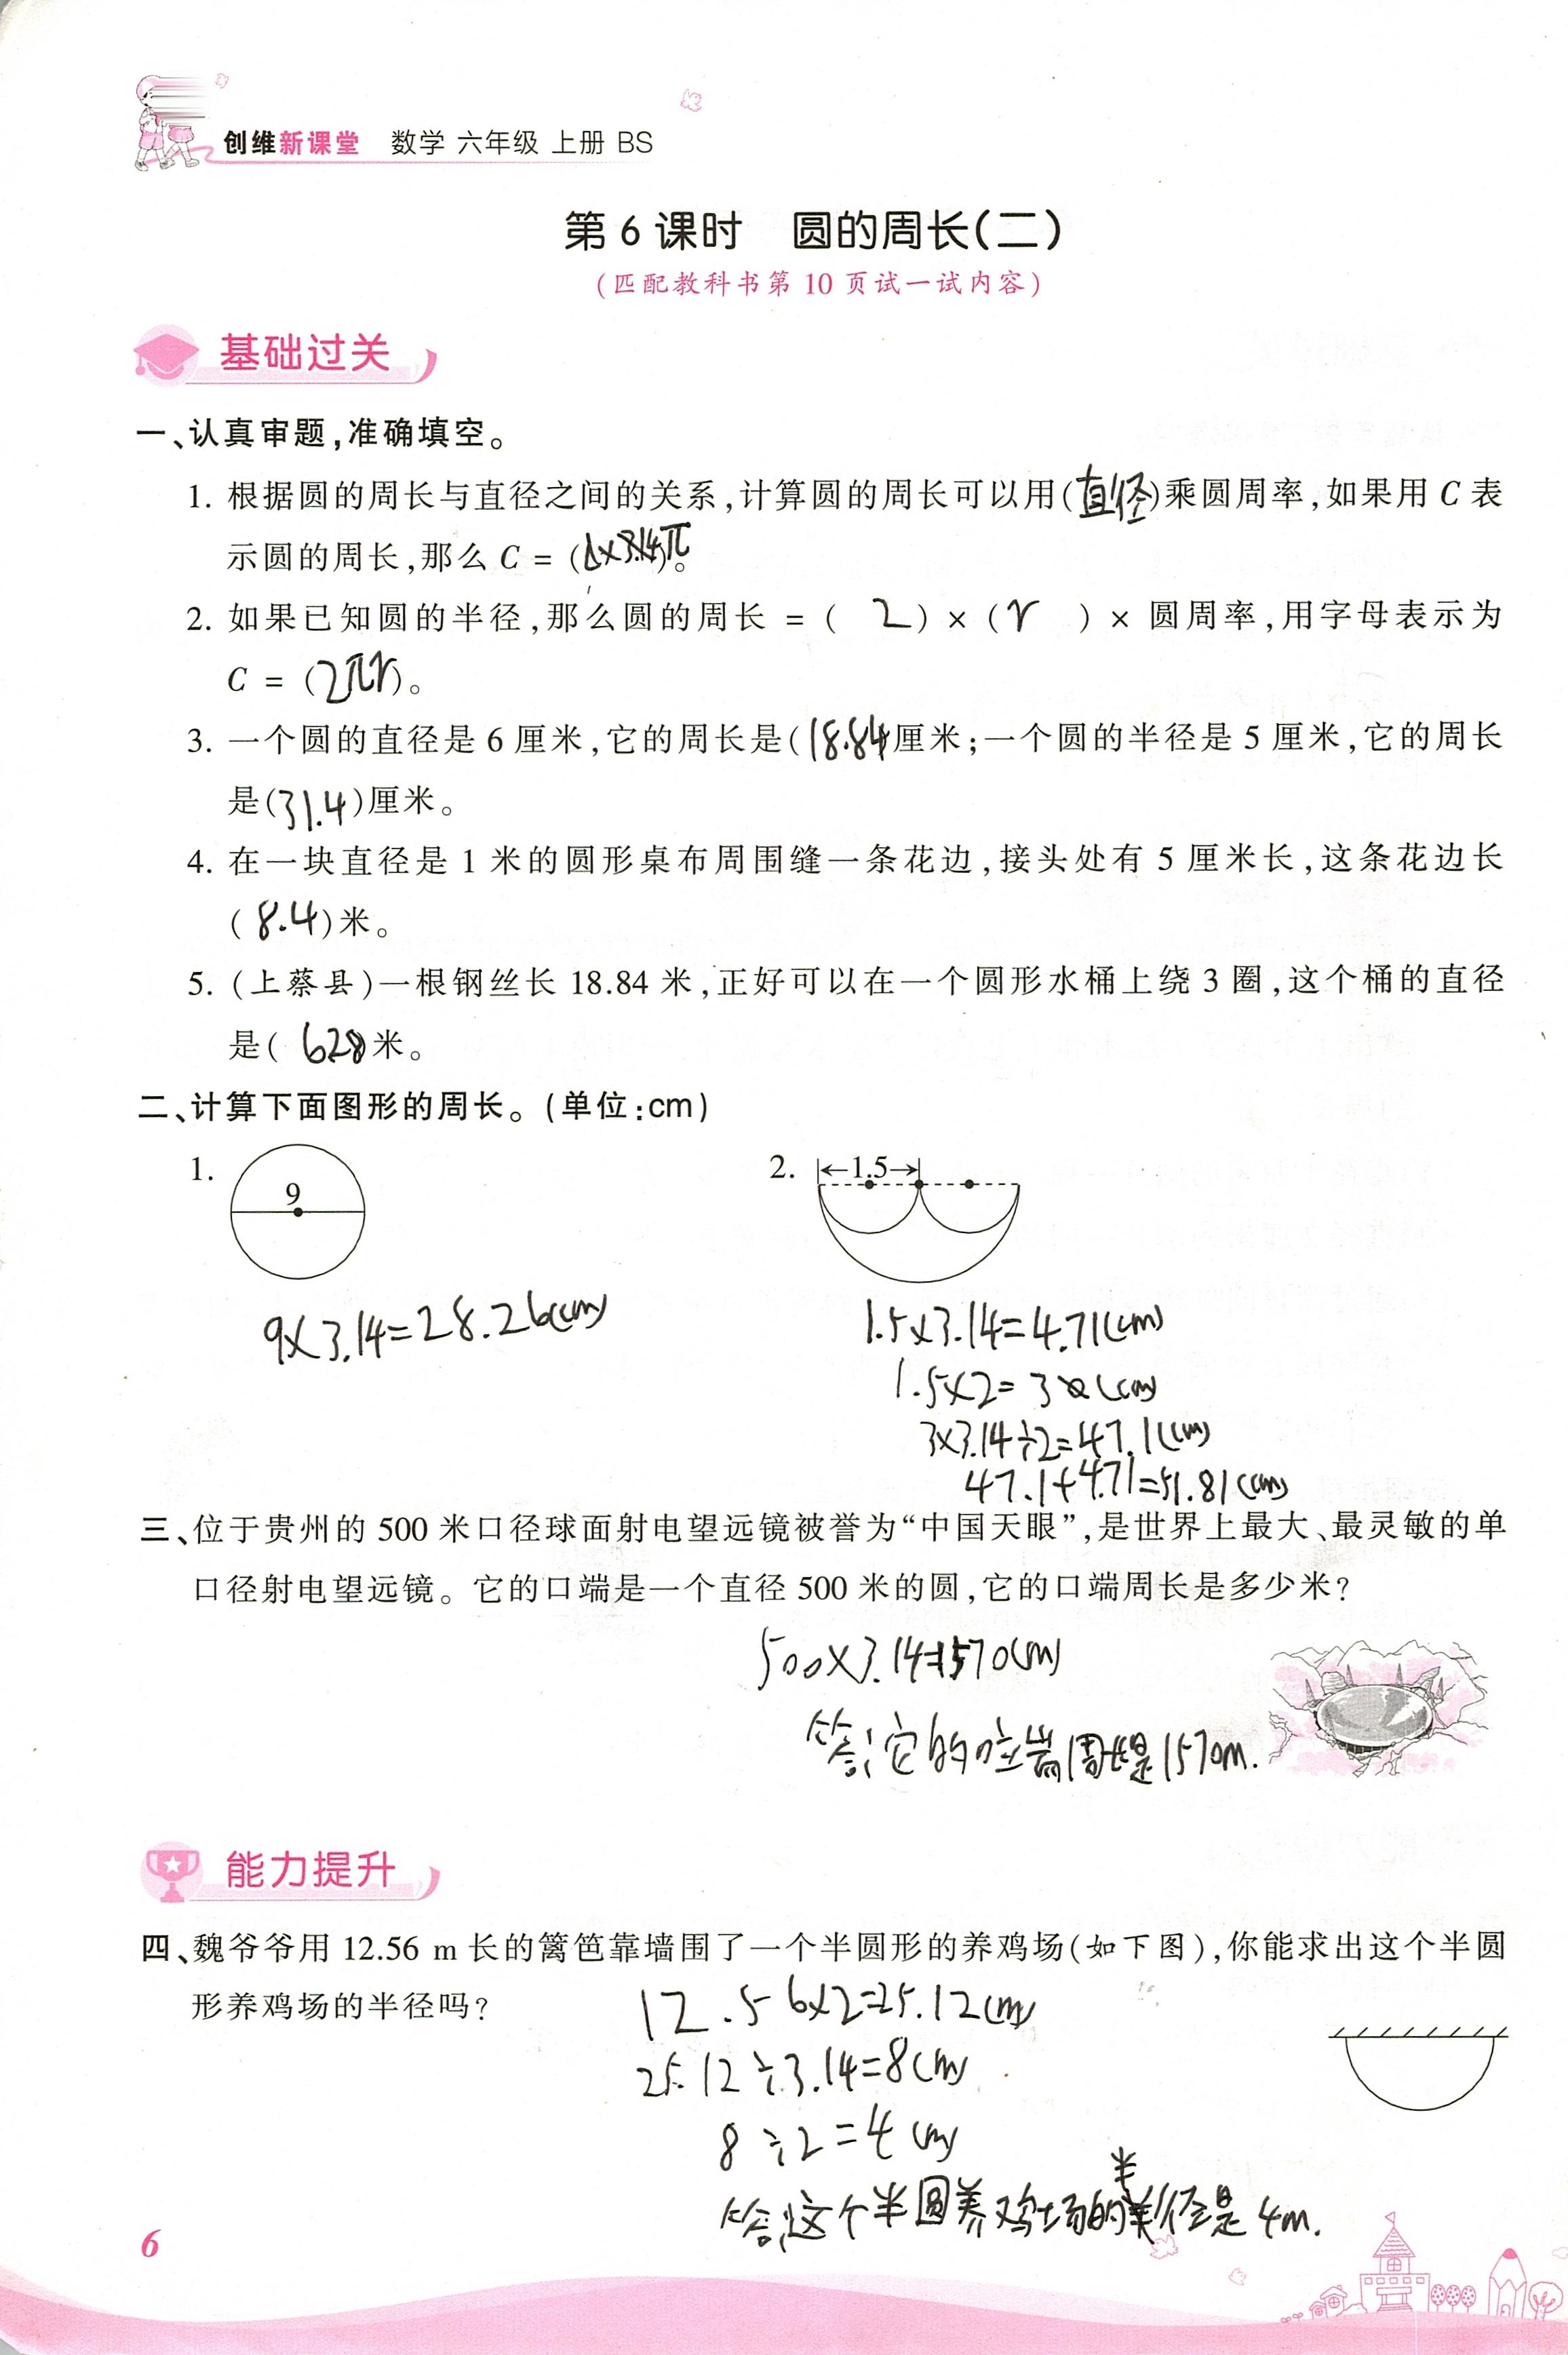 创维新课堂 数学 六年级 上册 BS
第 6 课时 圆的周长(二)
(匹配教科书第 10 页试一试内容)
基础过关
一、认真审题,准确填空。
1. 根据圆的周长与直径之间的关系,计算圆的周长可以用(直径)乘圆周率,如果用 C 表
示圆的周长,那么 C = ( π)。
2. 如果已知圆的半径,那么圆的周长 = ( 2 ) × ( r ) × 圆周率,用字母表示为
C = (2πr)。
3. 一个圆的直径是 6 厘米,它的周长是(18.84厘米;一个圆的半径是 5 厘米,它的周长
是(31.4)厘米。
4. 在一块直径是 1 米的圆形桌布周围缝一条花边,接头处有 5 厘米长,这条花边长
(8.4)米。
5. (上蔡县)一根钢丝长 18.84 米,正好可以在一个圆形水桶上绕 3 圈,这个桶的直径
是( 628)米。
二、计算下面图形的周长。(单位:cm)
1. 9
2. 1.5
9×3.14=28.26(cm)
1.5×3.14=4.71(cm)
1.5×2=3(cm)
3×3.14÷2=47.1(cm)
47.1+4.71=51.81(cm)
三、位于贵州的 500 米口径球面射电望远镜被誉为“中国天眼”,是世界上最大、最灵敏的单
口径射电望远镜。它的口端是一个直径 500 米的圆,它的口端周长是多少米?
500×3.14=1570(m)
答:它的口端周长是1570m.
能力提升
四、魏爷爷用 12.56 m 长的篱笆靠墙围了一个半圆形的养鸡场(如下图),你能求出这个半圆
形养鸡场的半径吗?
12.56×2=25.12(m)
25.12÷3.14=8(m)
8÷2=4(m)
答:这个半圆养鸡场的半径是4m.
6